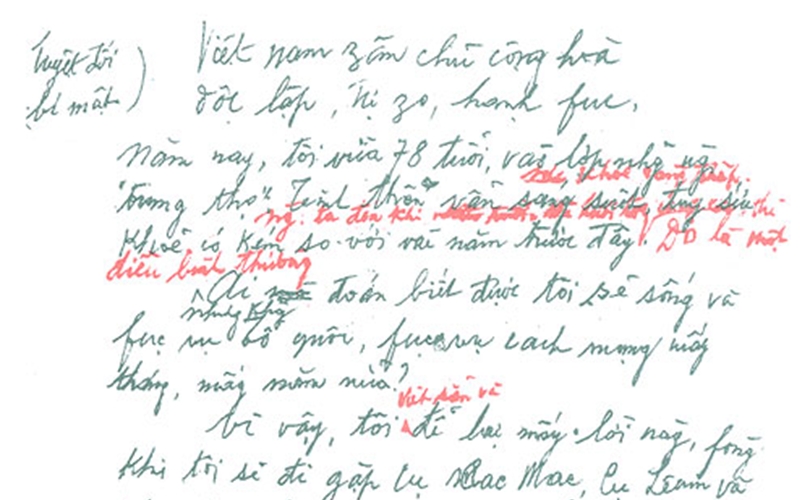 Tuyệt đối
bí mật
Việt nam zân chủ cộng hoà
độc lập, tự zo, hạnh fuc,
Năm nay, tôi vừa 78 tuổi, vào lớp nhg ng
"trung thọ". Tinh thần vẫn sáng suốt, tuy
khoẻ có kém so với vài năm trước đây. Đó là một
ng. ta đến khi
điều bình thường
Ai đoán biết được tôi sẽ sống và
fuc vụ tổ quốc, fuc vụ cach mạng mấy
tháng, mấy năm nữa?
viết sẵn và
Vì vậy, tôi để lại mấy lời này, fong
khi tôi sẽ đi gặp cụ Cac Mac, cụ Lênin và